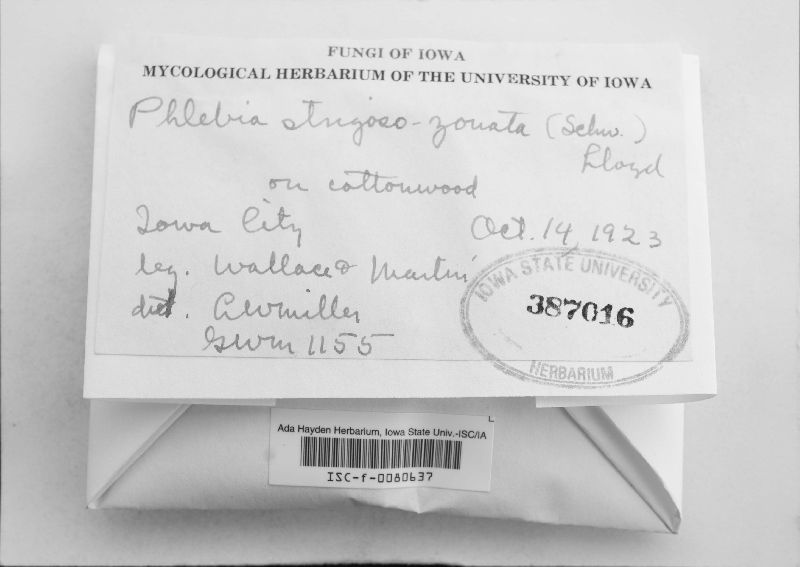 FUNGI OF IOWA
MYCOLOGICAL HERBARIUM OF THE UNIVERSITY OF IOWA
Phlebia strigoso-zonata (Schw.)
Lloyd
on cottonwood
Iowa City Oct. 14, 1923
leg. Wallace & Martin
det. LWMiller
GWM 1155
IOWA STATE UNIVERSITY
387016
HERBARIUM
Ada Hayden Herbarium, Iowa State Univ.-ISC/IA
ISC-f-0080637